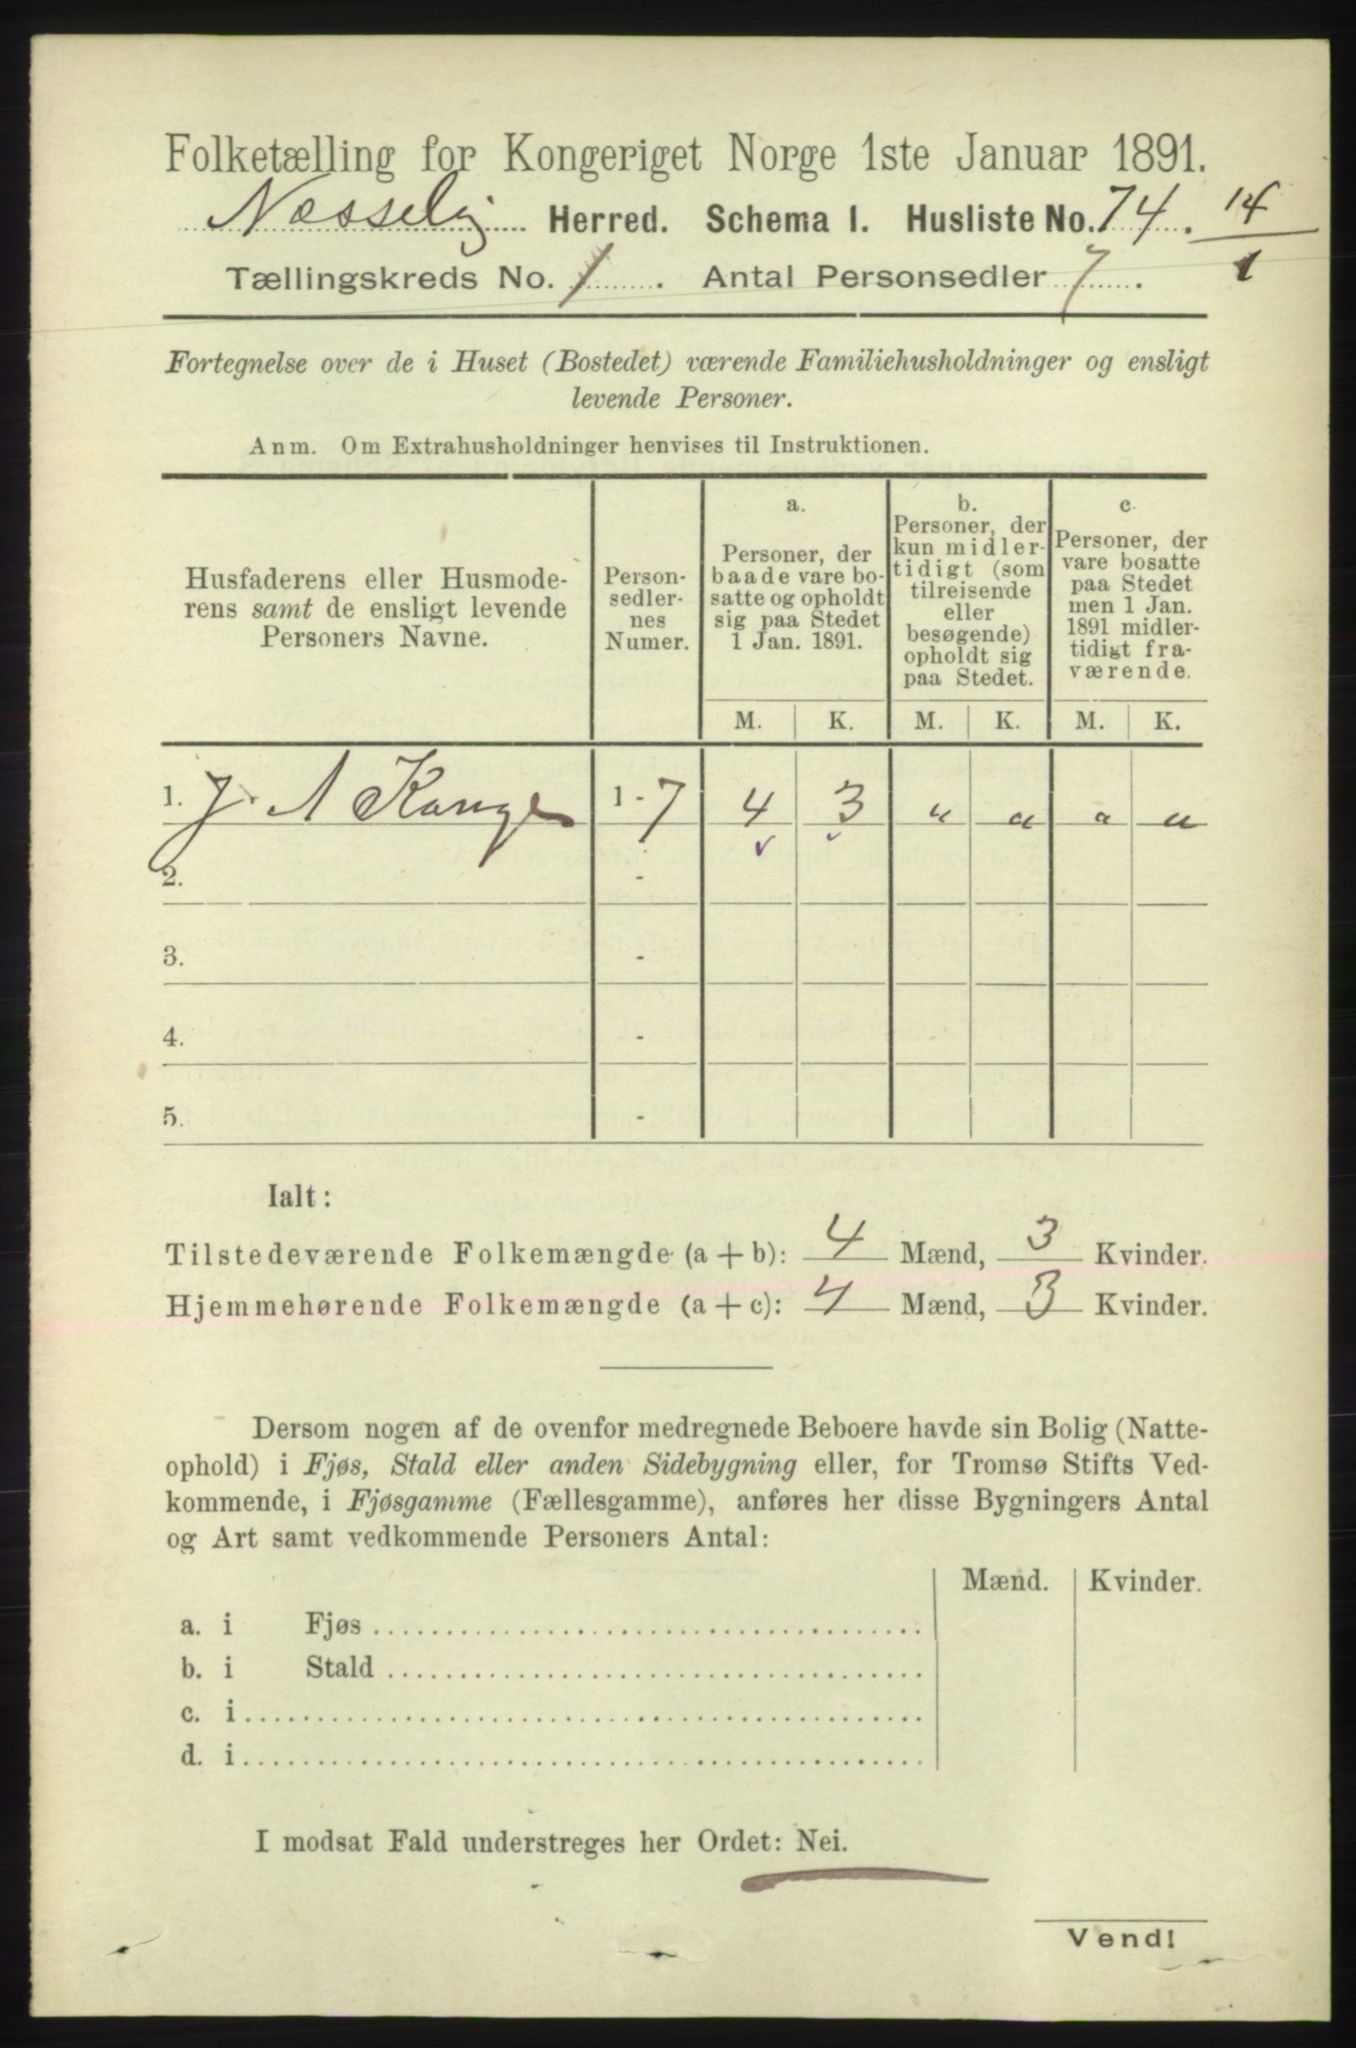 Folketælling for Kongeriget Norge 1ste Januar 1891.
Næsseby Herred. Schema 1. Husliste No. 74. 14
Tællingskreds No. 1. Antal Personsedler 7. 1
Fortegnelse over de i Huset (Bostedet) værende Familiehusholdninger og ensligt
levende Personer.
Anm. Om Extrahusholdninger henvises til Instruktionen.
Husfaderens eller Husmode-
rens samt de ensligt levende
Personers Navne.
Person-
sedler-
nes
Numer.
a.
Personer, der
baade vare bo-
satte og opholdt
sig paa Stedet
1 Jan. 1891.
b.
Personer, der
kun midler-
tidigt (som
tilreisende
eller
besøgende)
opholdt sig
paa Stedet.
c.
Personer, der
vare bosatte
paa Stedet
men 1 Jan.
1891 midler-
tidigt fra-
værende.
M. K. M. K. M. K.
1. J. A 1 - 7 4 3 " " " "
2. -
3. -
4. -
5. -
Ialt:
Tilstedeværende Folkemængde (a + b): 4 Mænd, 3 Kvinder.
Hjemmehørende Folkemængde (a + c): 4 Mænd, 3 Kvinder.
Dersom nogen af de ovenfor medregnede Beboere havde sin Bolig (Natte-
ophold) i Fjøs, Stald eller anden Sidebygning eller, for Tromsø Stifts Ved-
kommende, i Fjøsgamme (Fællesgamme), anføres her disse Bygningers Antal
og Art samt vedkommende Personers Antal:
Mænd. Kvinder.
a. i Fjøs
b. i Stald
c. i
d. i
I modsat Fald understreges her Ordet: Nei.
Vend!